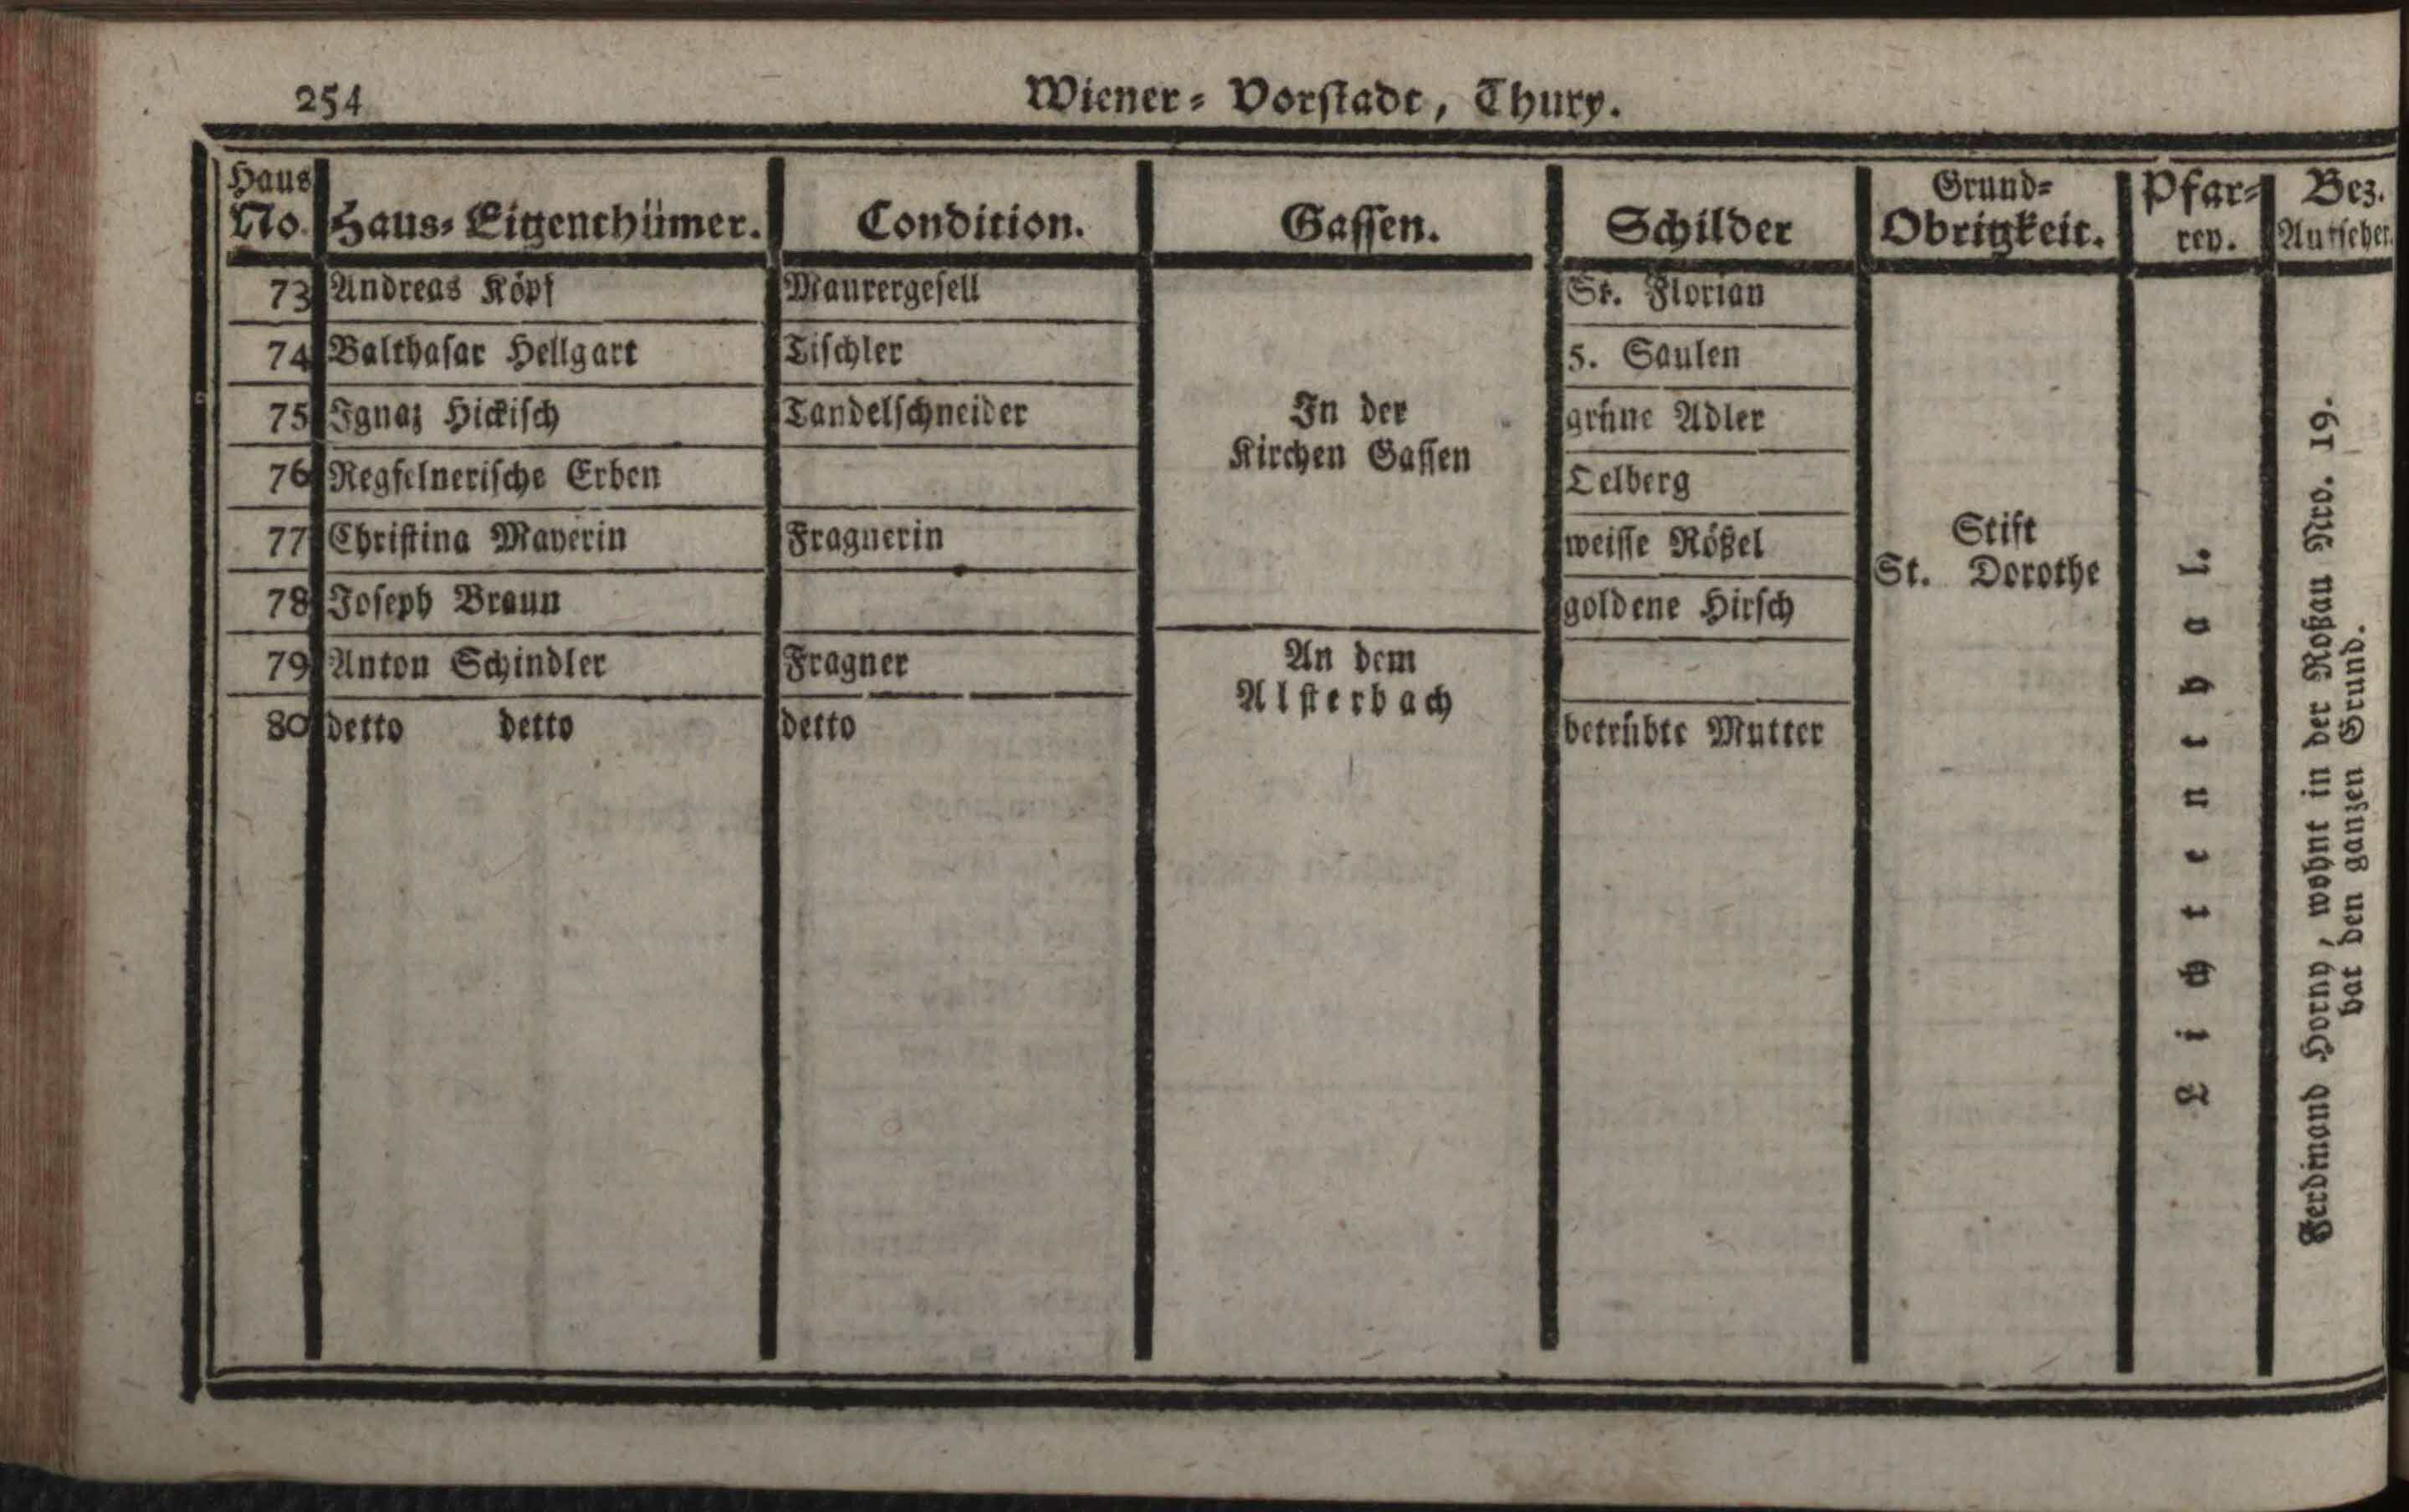 254
Wiener- Vorstadt, Thury.
Haus No. Haus-Eigenthümer. Condition. Gassen. Schilder Grund-Obrigkeit. Pfar-rey. Bez. Aufseher.
73 Andreas Köpf Maurergesell St. Florian
74 Balthasar Hellgart Tischler 5. Saulen
75 Ignaz Hickisch Tandelschneider grüne Adler
In der
Kirchen Gassen
76 Regfelnerische Erben Oelberg
77 Christina Mayerin Fragnerin weisse Rößel
78 Joseph Braun goldene Hirsch
Stift
St. Dorothe
79 Anton Schindler Fragner
An dem
Alsterbach
80 detto detto detto betrübte Mutter
Lichtenthal.
Ferdinand Horny, wohnt in der Roßau Nro. 19.
hat den ganzen Grund.